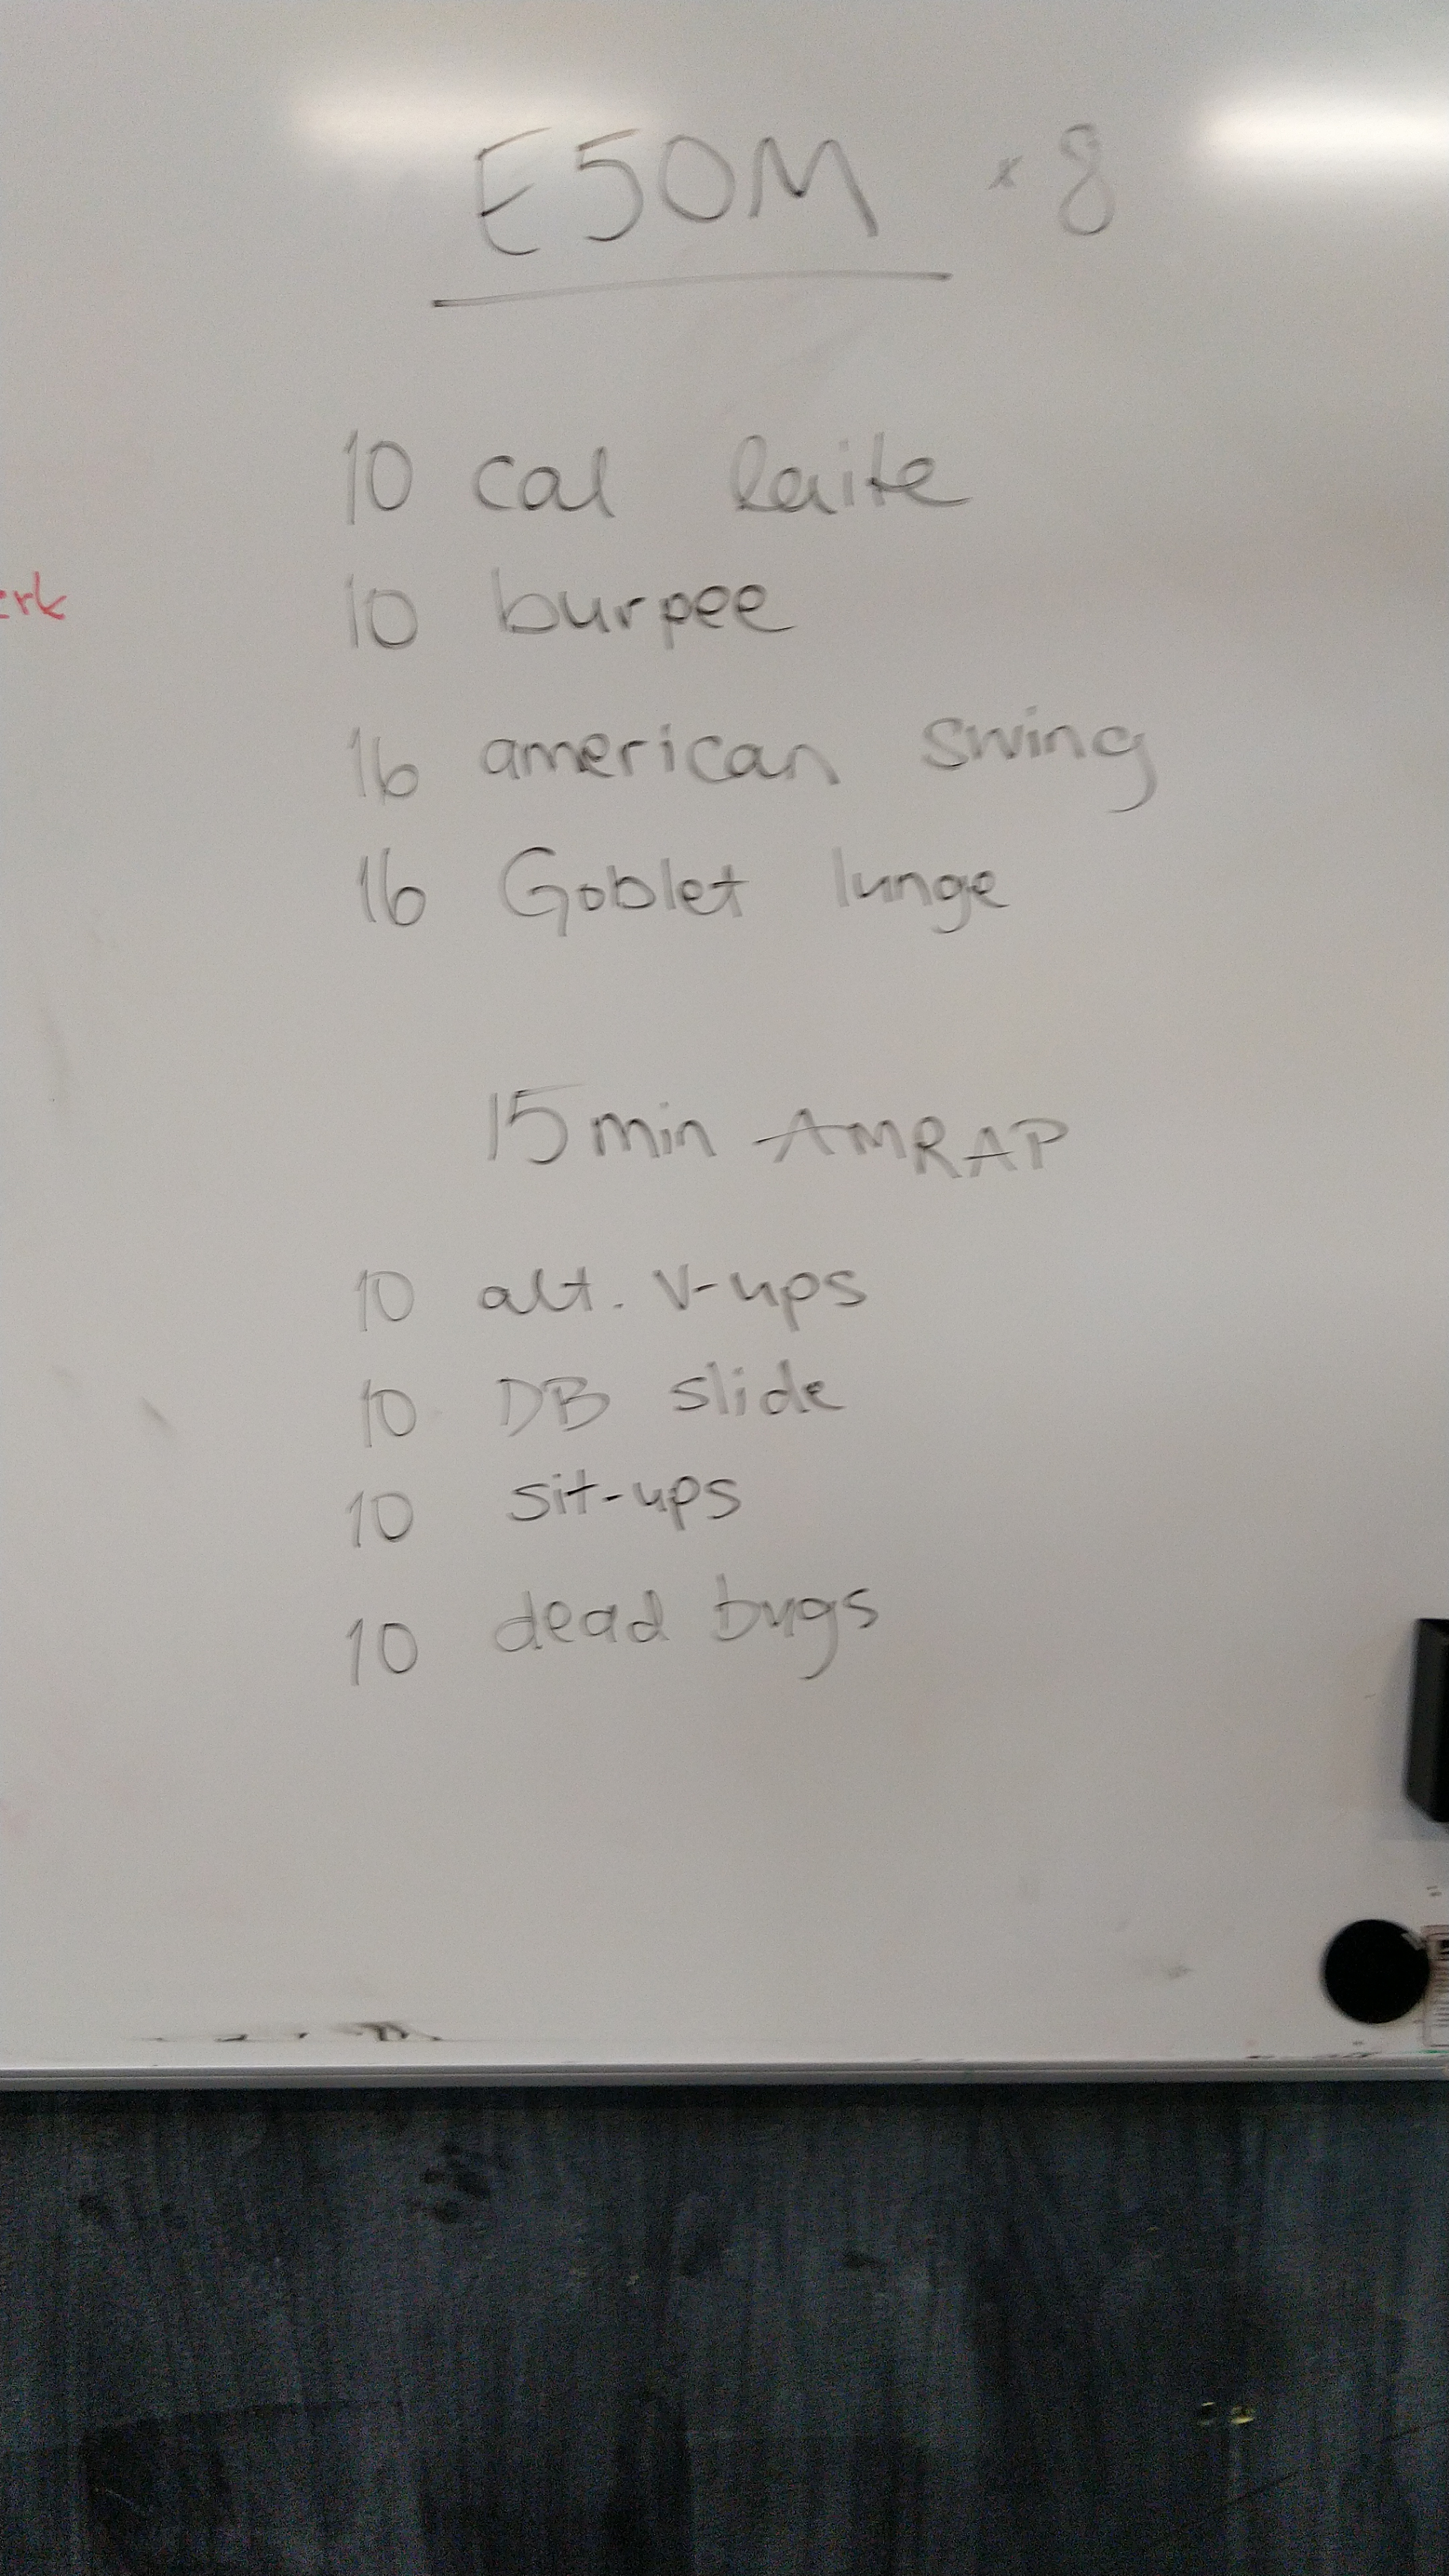 E5OM x 8
10 cal laite
erk
10 burpee
16 american swing
16 Goblet lunge
15 min AMRAP
10 alt. V-ups
10 DB slide
10 sit-ups
10 dead bugs